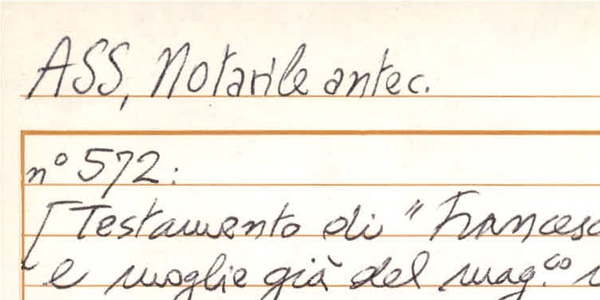 ASS, Notarile antec.
n° 572:
[Testamento di "Francesc
e moglie già del mag.co